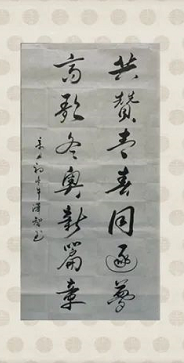 共赞青春同逐梦
高歌冬奥新篇章